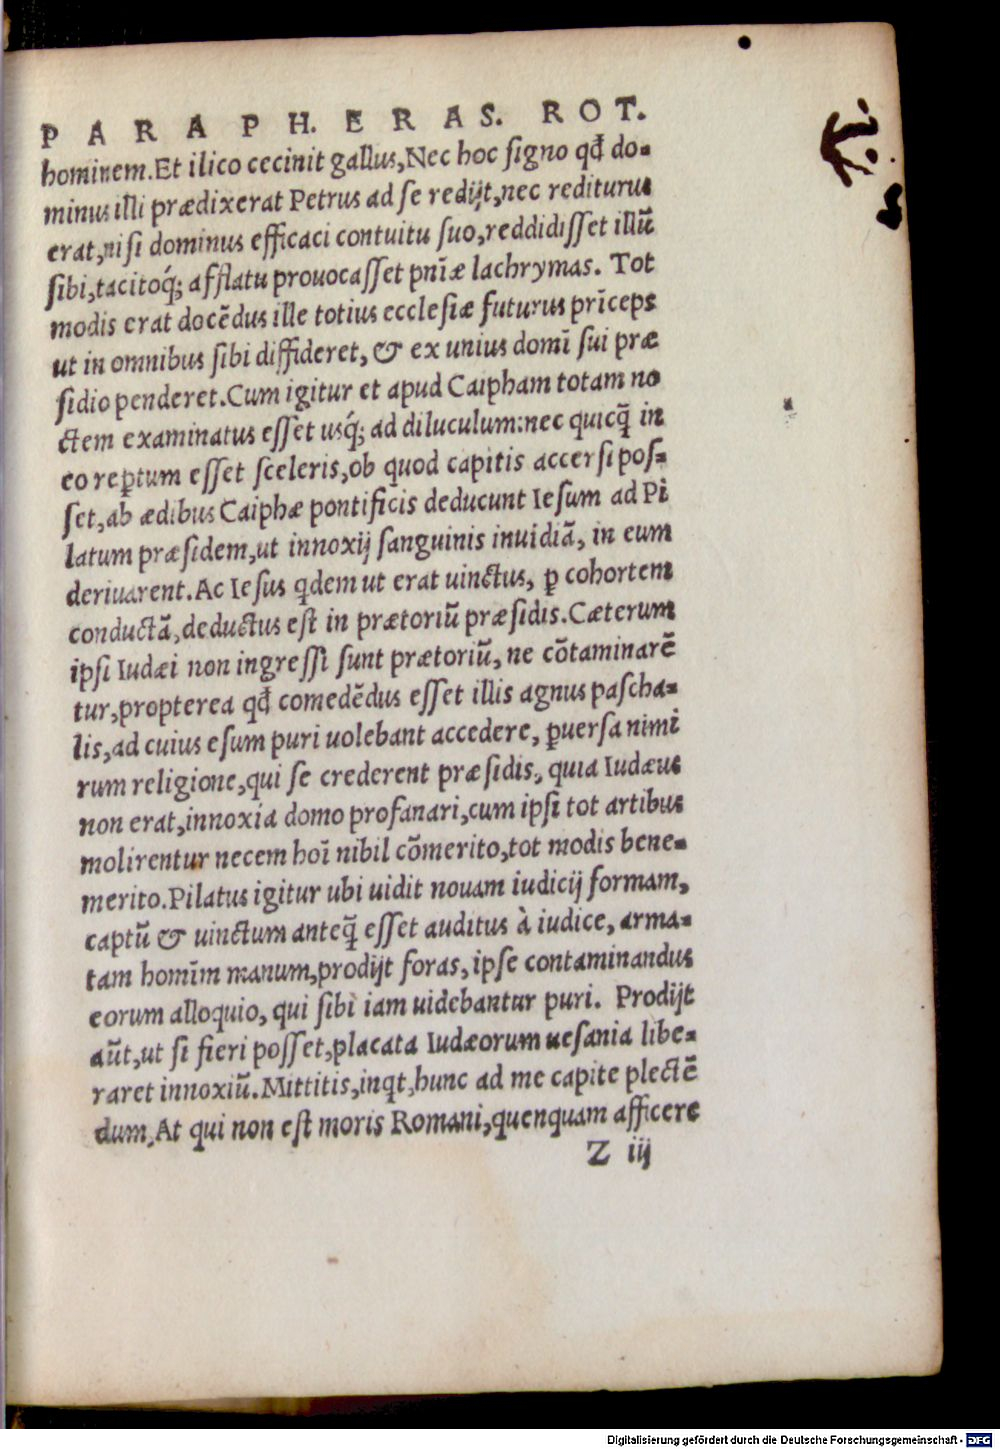 PARAPH. ERAS. ROT.
hominem. Et ilico cecinit gallus, Nec hoc signo qđ do-
minus illi prædixerat Petrus ad se redijt, nec rediturus
erat, nisi dominus efficaci contuitu suo, reddidisset illũ
sibi, tacitoq́; afflatu prouocasset pnĩæ lachrymas. Tot
modis erat docẽdus ille totius ecclesiæ futurus prĩceps
ut in omnibus sibi diffideret, & ex unius domĩ sui præ
sidio penderet. Cum igitur et apud Caipham totam no
ctem examinatus esset usq́; ad diluculum: nec quicq̃ in
eo reꝑtum esset sceleris, ob quod capitis accersi pos-
set, ab ædibus Caiphæ pontificis deducunt Iesum ad Pi
latum præsidem, ut innoxij sanguinis inuidiã, in eum
deriuarent. Ac Iesus qdem ut erat uinctus, ꝑ cohortem
conductã, deductus est in prætoriũ præsidis. Cæterum
ipsi Iudæi non ingressi sunt prætoriũ, ne cõtaminarẽ
tur, propterea qđ comedẽdus esset illis agnus pascha-
lis, ad cuius esum puri uolebant accedere, ꝑuersa nimi
rum religione, qui se crederent præsidis, quia Iudæus
non erat, innoxia domo profanari, cum ipsi tot artibus
molirentur necem hoĩ nihil cõmerito, tot modis bene-
merito. Pilatus igitur ubi uidit nouam iudicij formam,
captũ & uinctum anteq̃ esset auditus à iudice, arma-
tam homĩm manum, prodijt foras, ipse contaminandus
eorum alloquio, qui sibi iam uidebantur puri. Prodijt
aũt, ut si fieri posset, placata Iudæorum uesania libe-
raret innoxiũ. Mittitis, inqt, hunc ad me capite plectẽ
dum, At qui non est moris Romani, quenquam afficere
Z iij
Digitalisierung gefördert durch die Deutsche Forschungsgemeinschaft - DFG